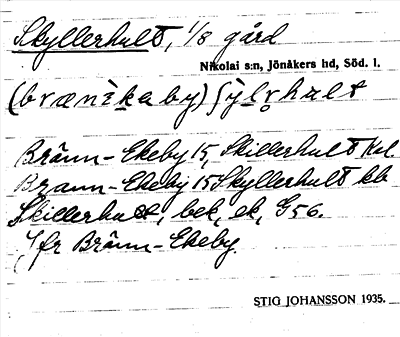 Skyllerhult, 1/8 gård
Nikolai s:n, Jönåkers hd, Söd. l.
(brænìkaby) ʃỳlrhult
Bränn-Ekeby 15, Skillerhult Kal.
Brann-Ekeby 15 Skyllerhult kb
Skillerhult, bek, ek, G56.
Jfr Bränn-Ekeby.
STIG JOHANSSON 1935.